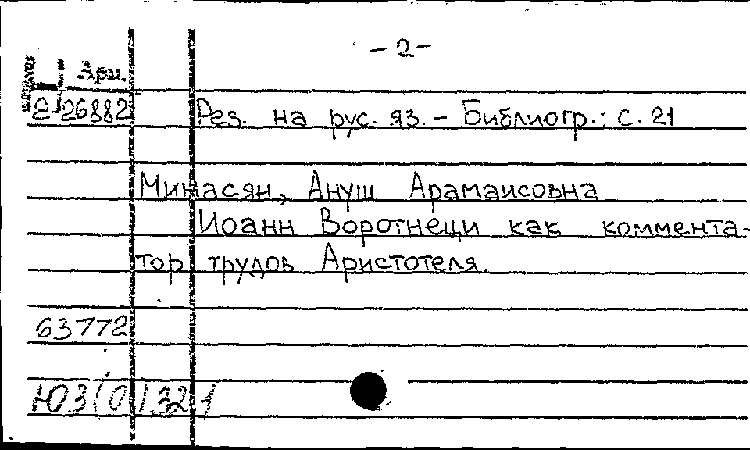 - 2 -
Ари.
2 26882 Рез. на рус. яз. - Библиогр.: с. 21
Минасян, Ануш Арамаисовна
Иоанн Воротнеци как коммента-
тор трудов Аристотеля.
63772
Ю3(0)321